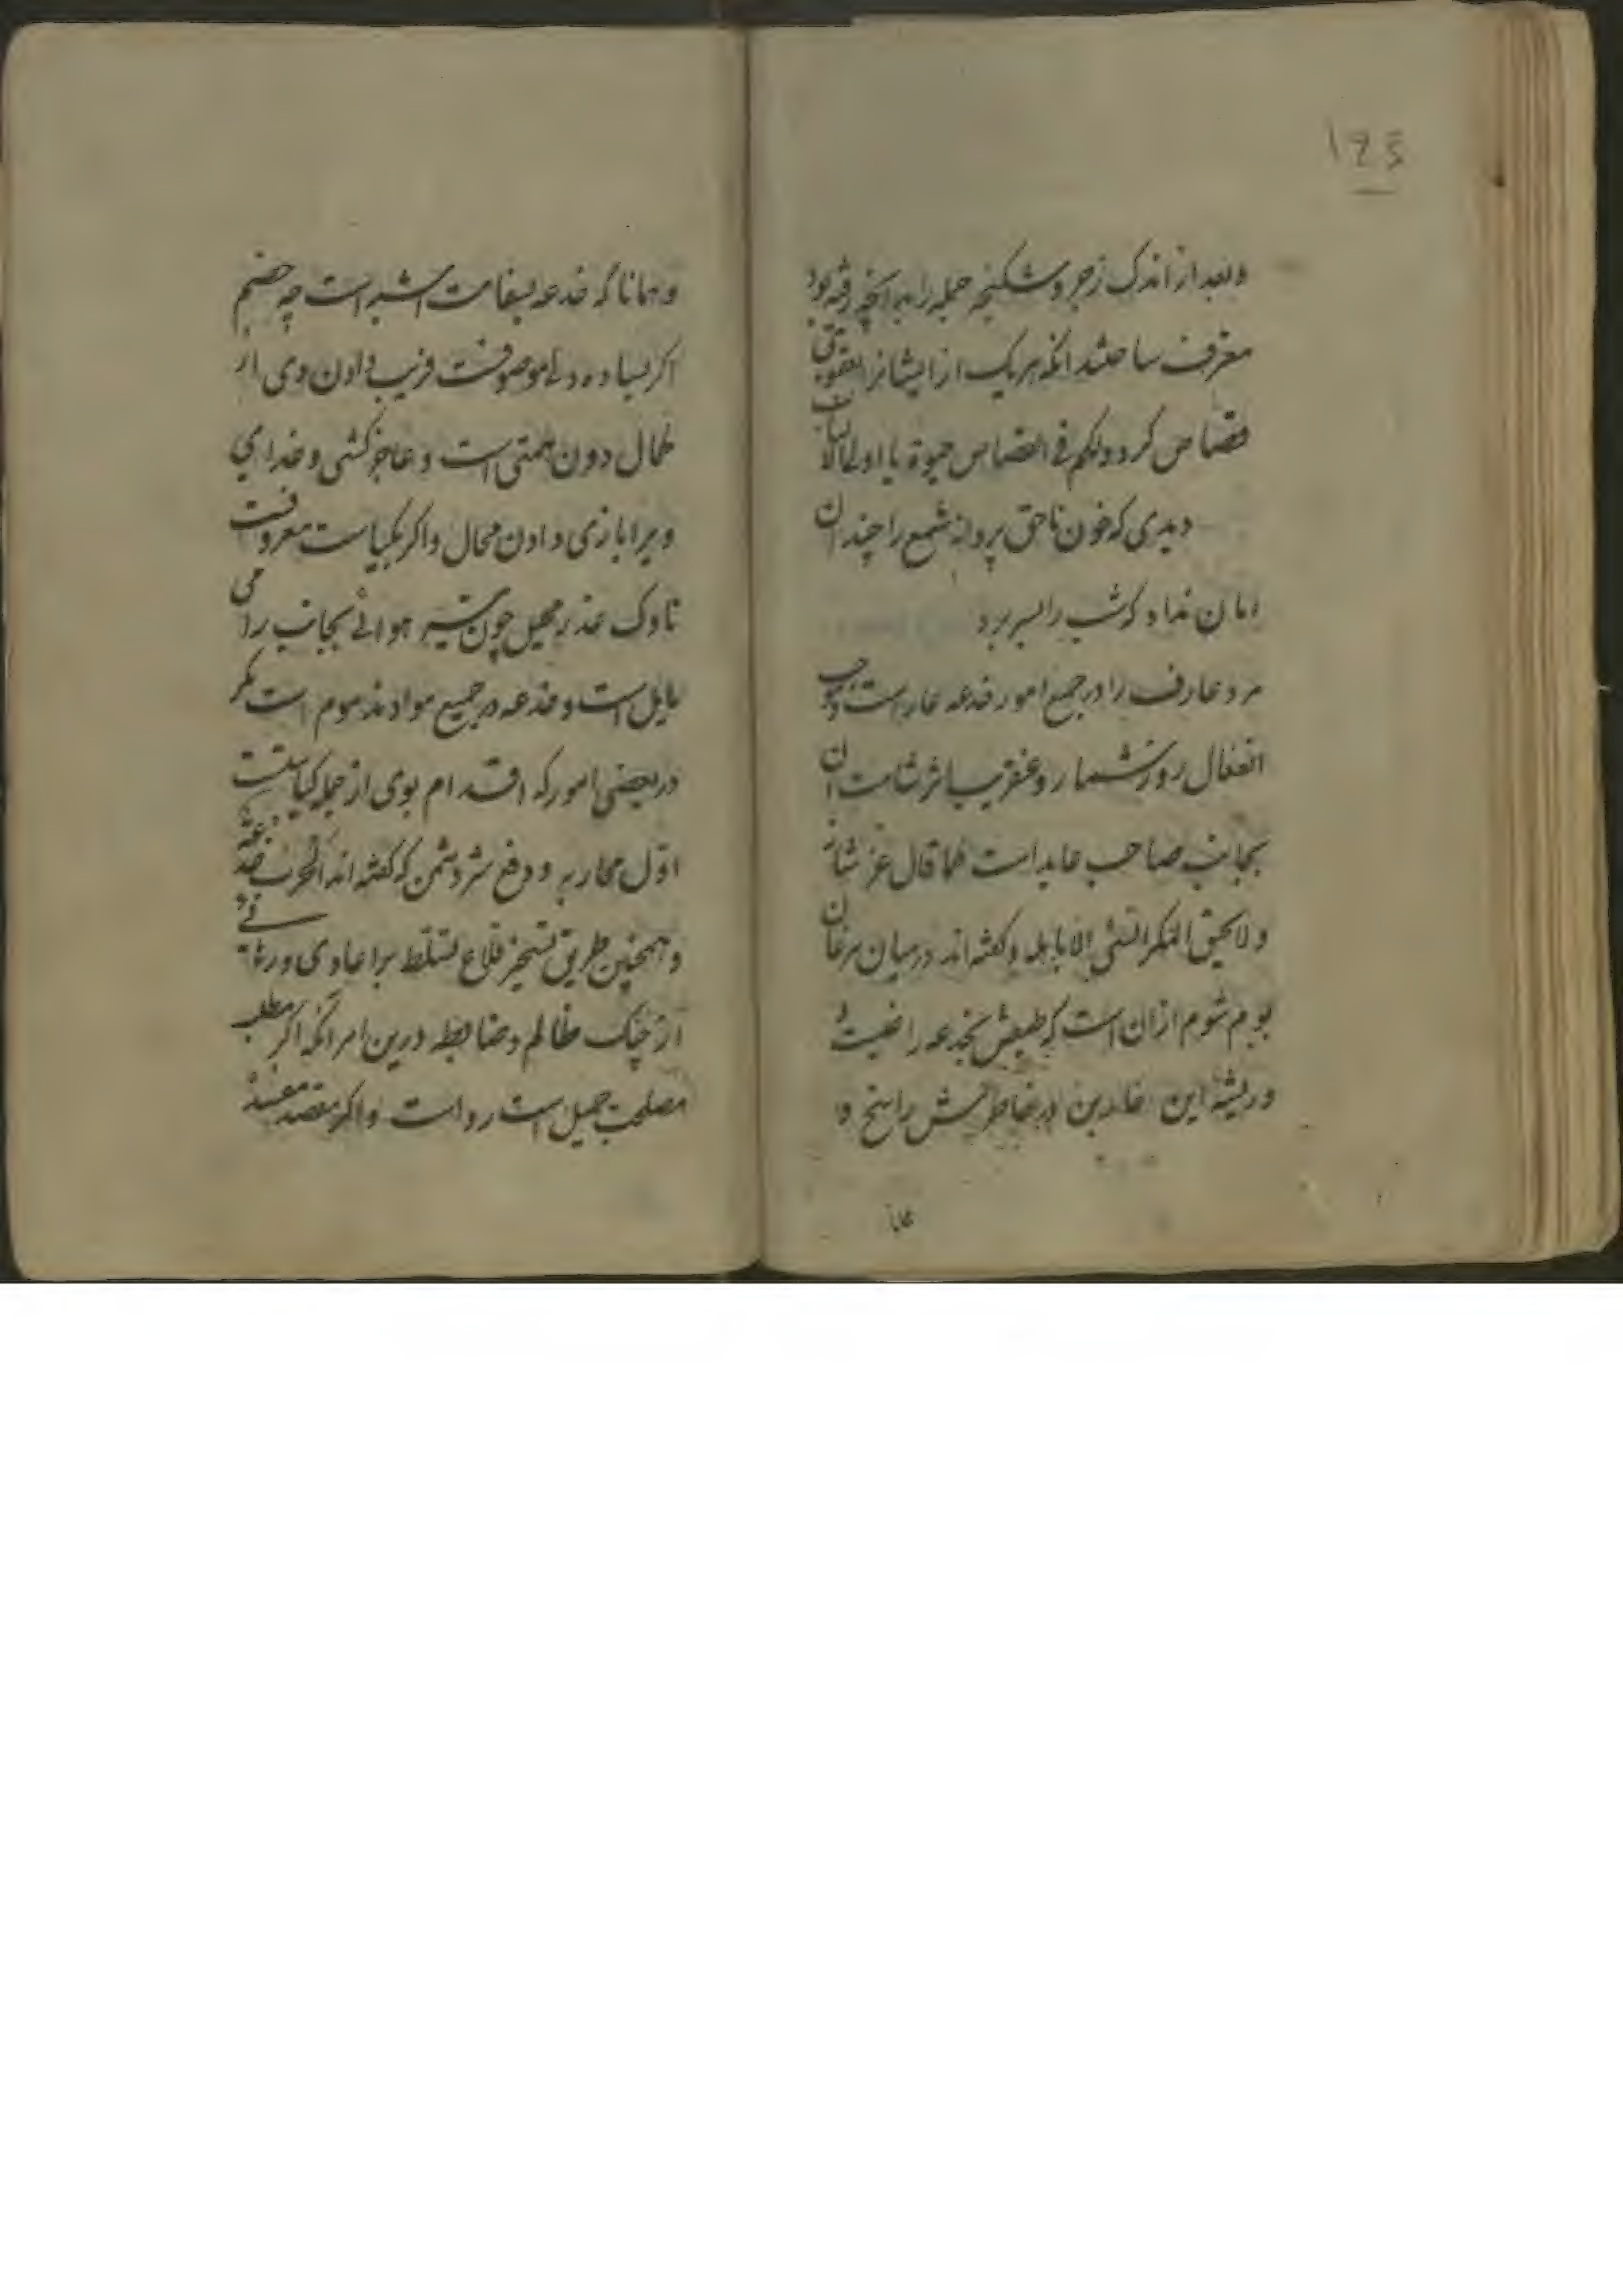 ۱۲۵
و بعد از اندک زجر و شکنجه جمله را بهر آنچه رفته بود
معترف ساختند انکه هر یک از ایشانرا بعقوبتی
قصاص کرد و لکم فی القصاص حیوة یا اولی الالباب
دیدی که خون ناحق پروانه شمع را چندان
امان نداد که شب را بسر برد
مرد عارف را در جمیع امور خدعه عار است و موجب
انفعال روز شمار و عنقریب اثر شامت آن
بجانب صاحب عاید است کما قال عز شانه
و لا یحیق المکر السئی الا باهله و کفته اند در میان مرغان
بوم شوم ازان است که طبعش بخدعه راغبست و
و ریشهٔ این خاربن در خاطرش راسخ و
همانا
و همانا که خدعه بسفاهت اشبه است چه خصم
اکر بساده دلی موصوفست فریب دادن وی از
کمال دون همتی است و عاجز کشی و غداری
ویرا بازی دادن محال و اکر بکیاست معروفست
ناوک غدر محیل چون تیر هوائی بجانب رامی
مایل است و خدعه در جمیع مواد مذموم است مکر
در بعضی امور که اقدام بوی از جمله کیاستست
اوّل محاربه و دفع شر دشمن که کفته اند الحرب خدعة
و همچنین طریق تسخیر قلاع تسلط بر اعادی و رهائی
از چنک ظالم و ضابطه درین امر آنکه اکر مطلب
مصلحت جمیل است رواست و اکر مقصد مفسدهٔ